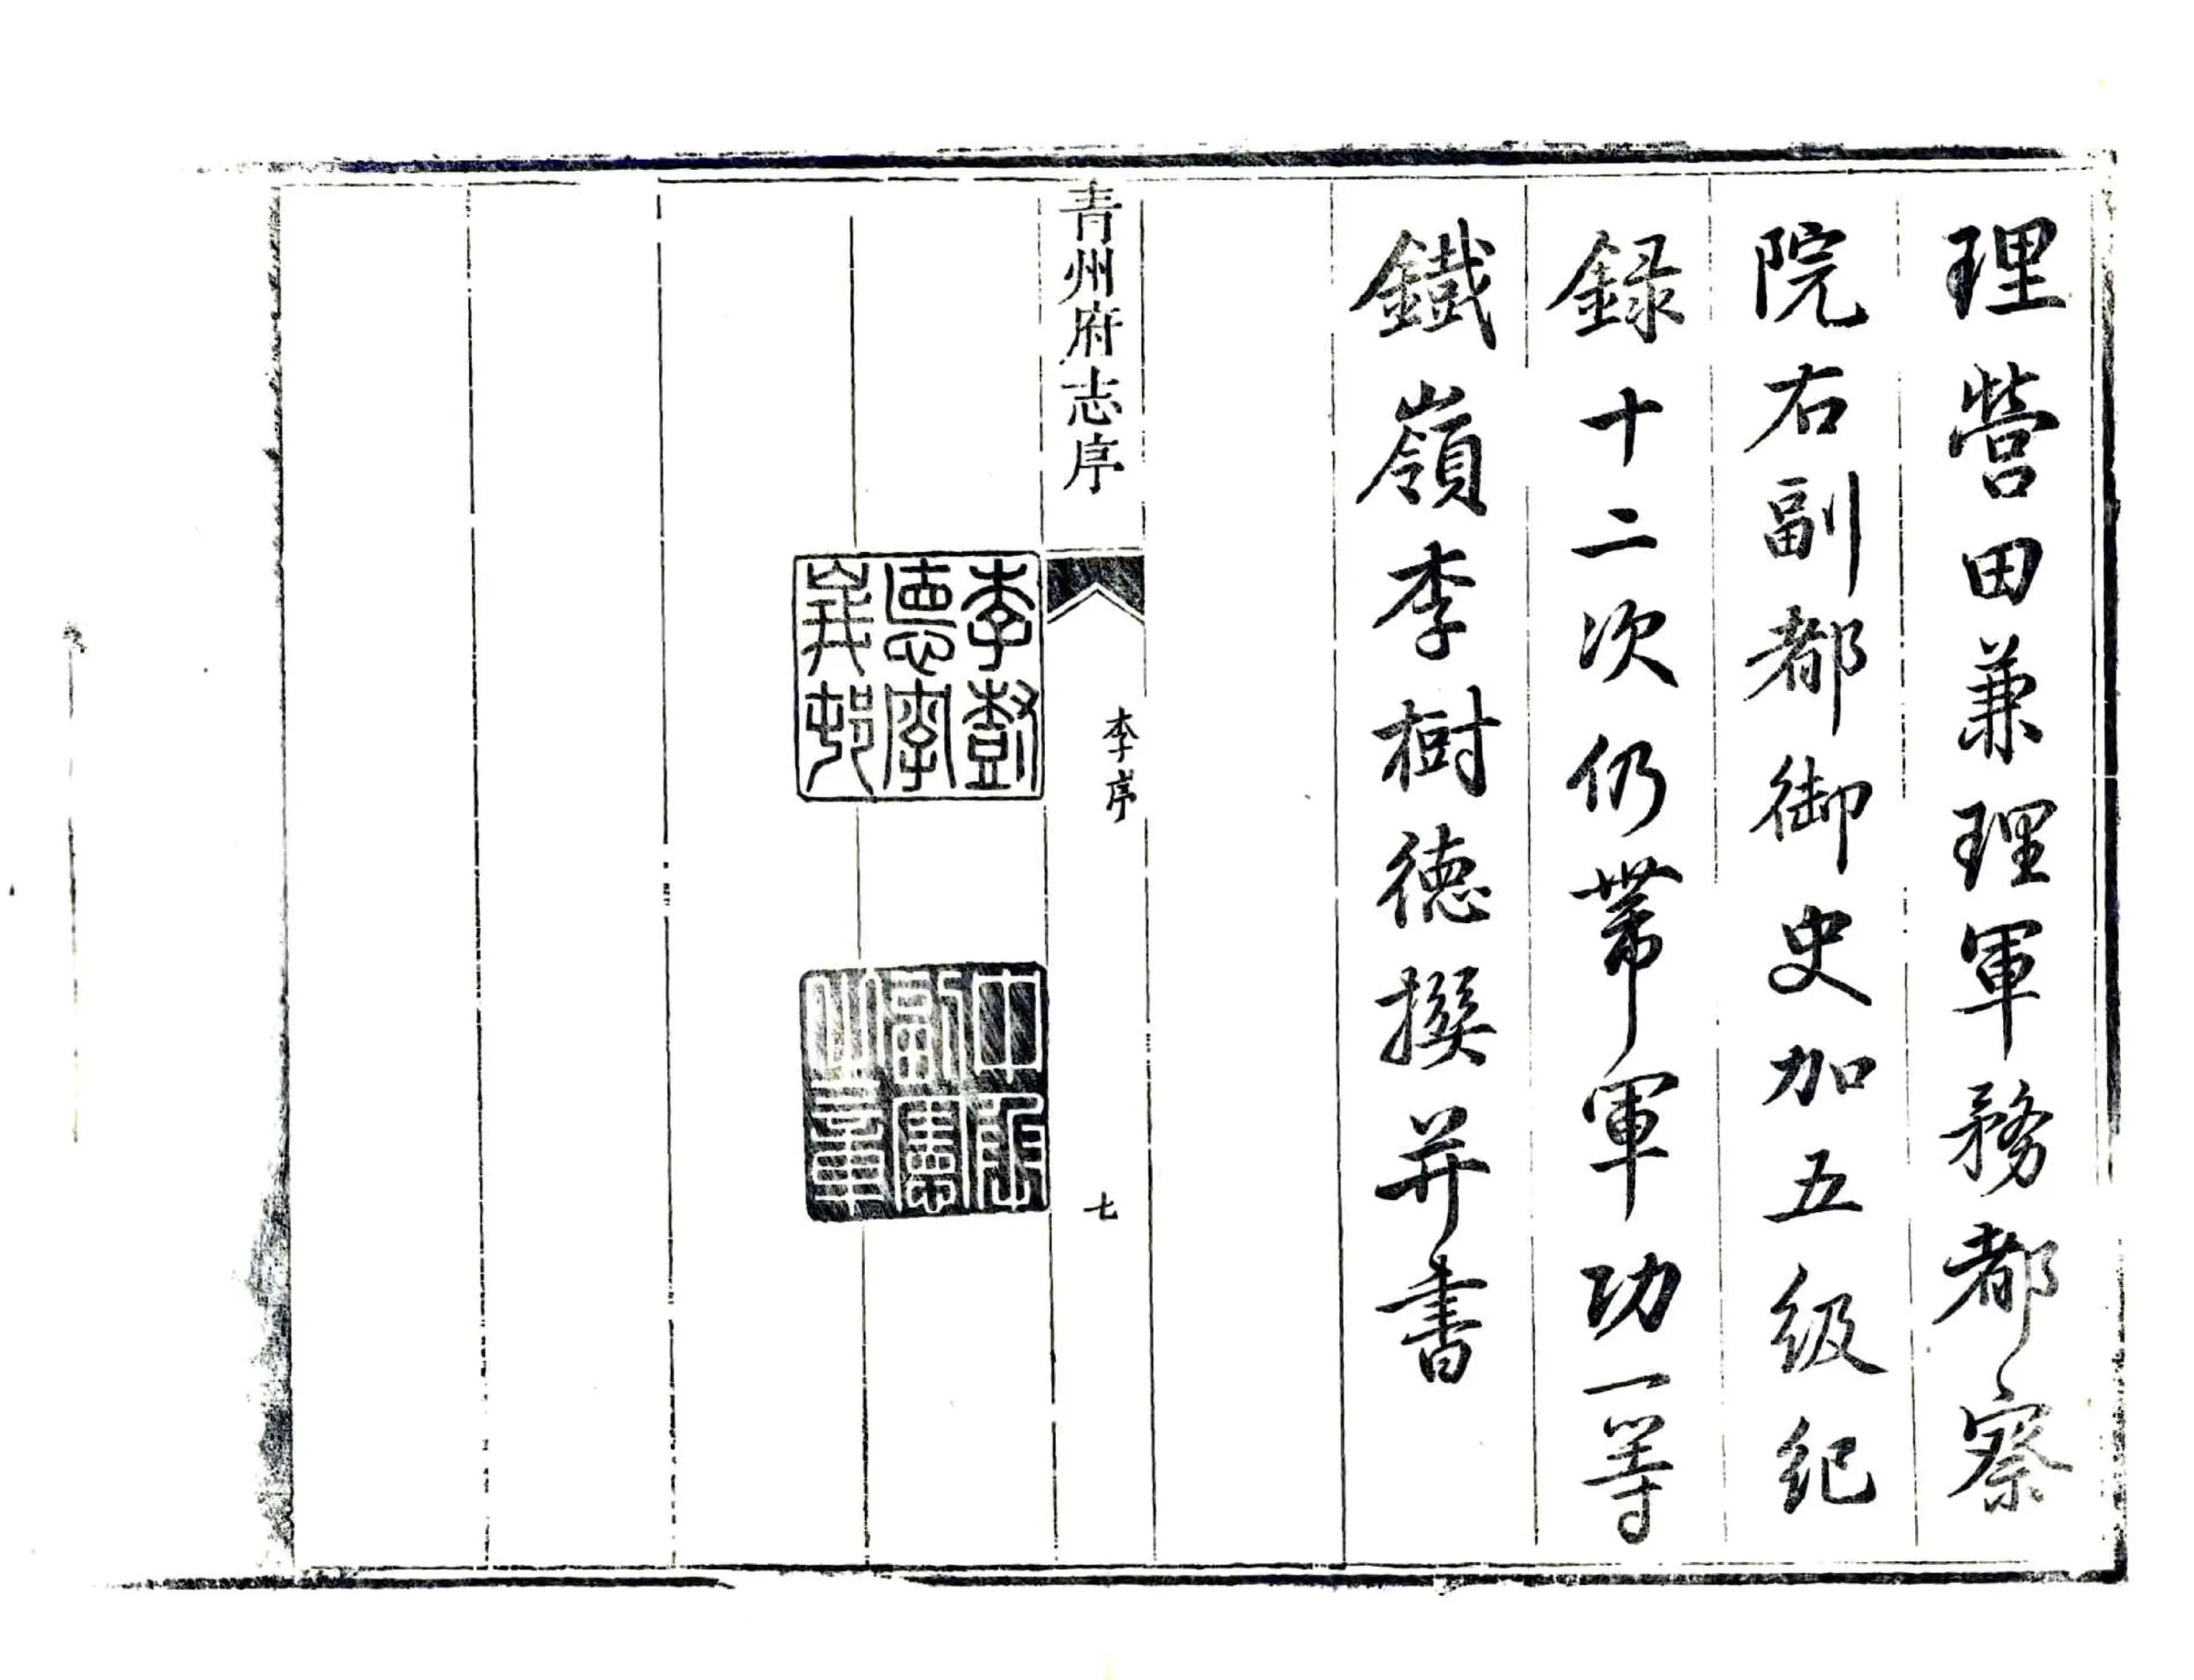 理營田兼理軍務都察
院右副都御史加五級紀
録十二次仍帶軍功一等
鐵嶺李樹德撰并書
青州府志序
李序
七
李尌
悳
邨
中丞
副憲
之章